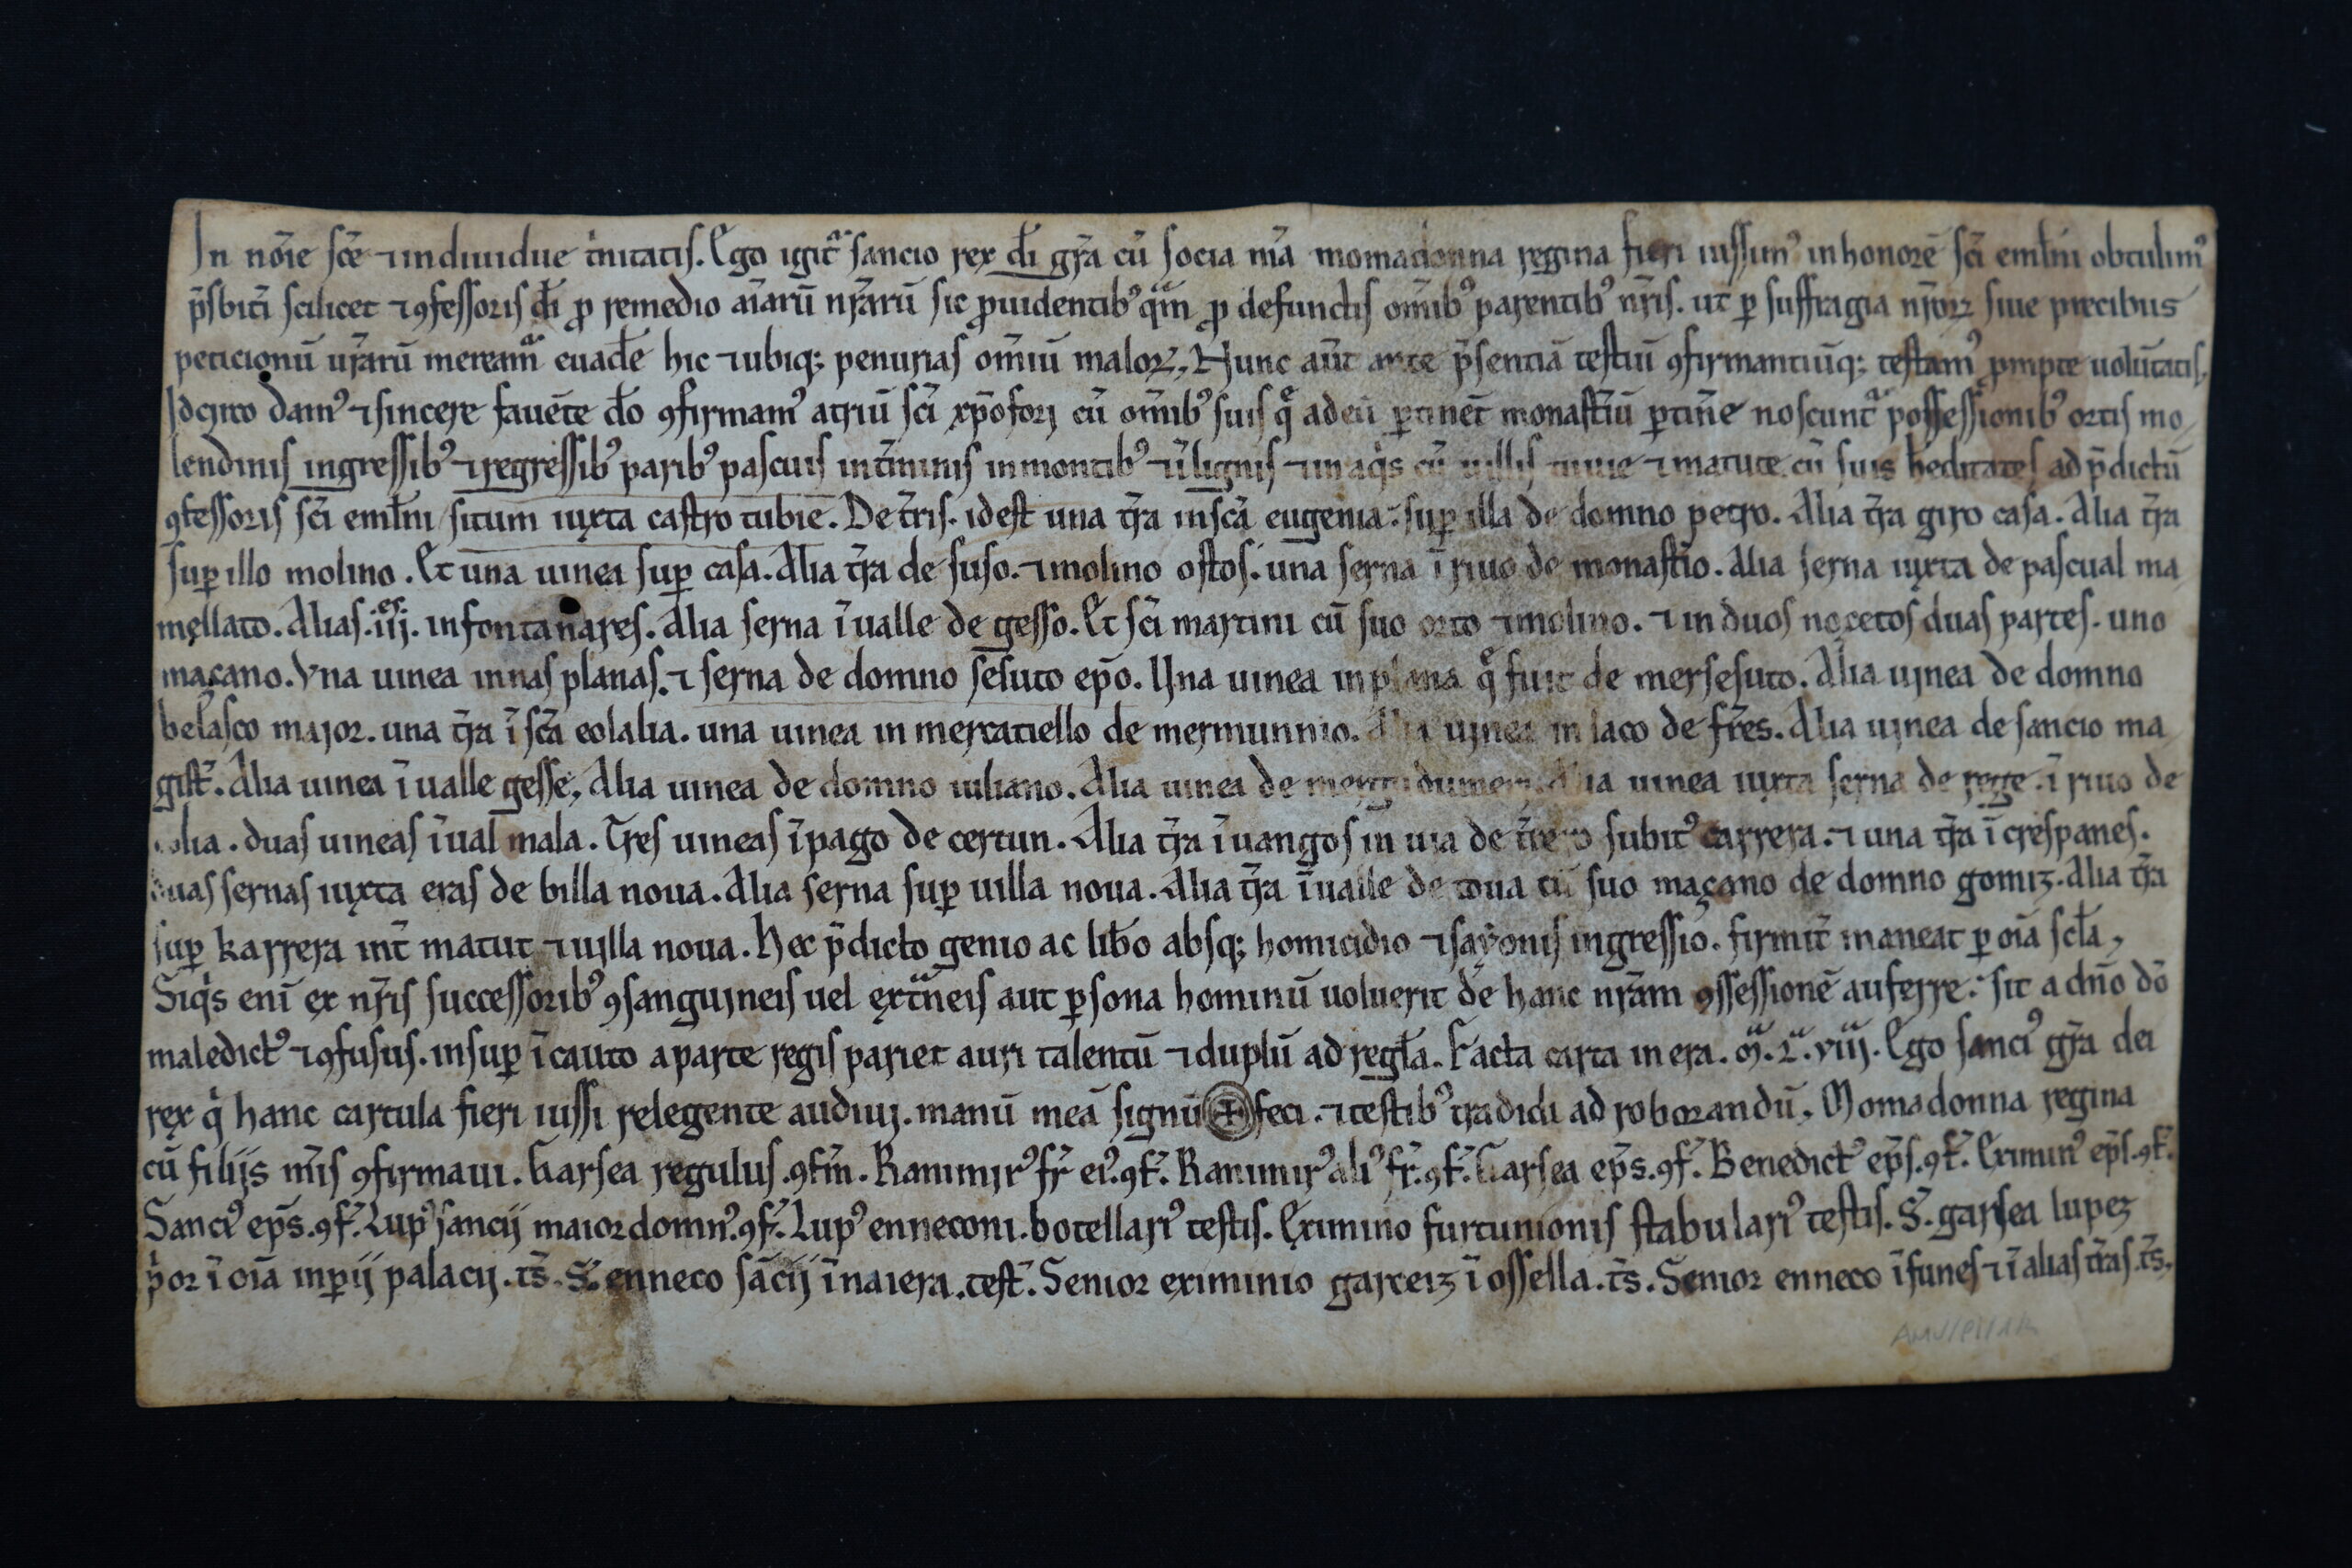 In nōie sc̄e ⁊ indiuidue t̄nitatis. Ego igit᷑ sancio rex dī gr̄a cū socia mīa momadonna regina fieri iussim᷒ in honorē sc̄i emłni obtulim᷒
p̄sbit̄i scilicet ⁊ ꝯfessoris dī ꝓ remedio aīarū nr̄arū sic ꝓuidentib᷒ q̄m ꝓ defunctis om̄ib᷒ parentib᷒ nr̄is. ut ꝑ suffragia nr̄oꝝ siue precibus
peticionū ur̄arū meream᷑ euadēe hic ⁊ ubiq; penurias om̄iū maloꝝ, Nunc aūt ante p̄sentiā testiū ꝯfirmantiūq; testam᷒ ꝓmpte uolūtatis,
Idcirco dam᷒ ⁊ sincere fauēte dō ꝯfirmam᷒ atriū sc̄i xp̄ofori cū om̄ib᷒ suis q̄ ad eū ꝑtinēt monast̄iū ꝑtin̄e noscunt᷑ possessionib᷒ ortis mo
lendinis ingressib᷒ ⁊ regressib᷒ parib᷒ pascuis in t̄minis in montib᷒ ⁊ ī lignis ⁊ in aq̄s cū uillis ⁊ matute cū suis heditates ad p̄dictū
ꝯfessoris sc̄i emłni situm iuxta castro tubie. De t̄ris. id est una tr̄a in sc̄a eugenia. suꝑ illa de domno petro. Alia tr̄a giro casa. Alia tr̄a
suꝑ illo molino. Et una uinea suꝑ casa. Alia tr̄a de suso. ⁊ molino ostos. una serna ī riuo de monast̄io. Alia serna iuxta de pascual ma
mellato. Alias .iij.es in fontanares. Alia serna ī ualle de gesso. Et sc̄i martini cū suo orto ⁊ molino. ⁊ in duos nocetos duas partes. uno
maçano. Vna uinea in nas planas. ⁊ serna de domno sesuto ep̄o. Una uinea in plana q̄ fuit de mersesuto. Alia uinea de domno
belasco major. una tr̄a ī sc̄a eolalia. una uinea in mercatiello de mermunnio. Alia uinea in laco de fr̄es. Alia uinea de sancio ma
gist̄. Alia uinea ī ualle gesse, Alia uinea de domno iuliano. Alia uinea de Alia uinea iuxta serna de rege. ī riuo de
duas uineas ī ual mala. Tres uineas ī pago de certun. Alia tr̄a ī uangos in uia de subit᷒ carrera. ⁊ una tr̄a ī crespanes.
duas sernas iuxta eras de billa noua. Alia serna suꝑ uilla noua. Alia tr̄a ī ualle de toua cū suo maçano de domno gomiz. Alia tr̄a
suꝑ karrera int̄ matut ⁊ uilla noua. Hec p̄dicto genio ac lib̄o absq; homicidio ⁊ sayonis ingressio. firmit̄ maneat ꝑ oīa scł̄a,
Siq̄s enī ex nr̄is successorib᷒ ꝯsanguineis uel ext̄neis aut ꝑsona hominū uoluerit de hanc nr̄am ꝯssessionē auferre. sit a dn̄o dō
maledict᷒ ⁊ ꝯfusus. insuꝑ ī cauto a parte regis pariet auri talentū ⁊ duplū ad regł̄a. Facta carta in era .ꟿ.ᵃ L.ᵃ viij.ᵃ Ego sanci᷒ gr̄a dei
rex q̄ hanc cartula fieri iussi relegente audiui. manū meā signū ✠ feci. ⁊ testib᷒ tradidi ad roborandū, Momadonna regina
cū filijs mīs ꝯfirmaui. Garsea regulus .ꝯfr̄m. Ranimir᷒ fr̄ ei᷒ .ꝯf̄. Ranimir᷒ ali᷒ fr̄ .ꝯf̄. Garsea ep̄s .ꝯf̄. Benedict᷒ ep̄s .ꝯf̄. Eximin᷒ ep̄s .ꝯf̄.
Sanci᷒ ep̄s .ꝯf̄. Lup᷒ sancij maior domn᷒ .ꝯf̄. Lup᷒ enneconi. botellari᷒ testis. Eximino furtunionis stabulari᷒ testis. S̄. garsea lupez
p̄or ī oīa inꝑij palacij .t̄s. S̄. enneco sācij ī naiera .test̄. Senior eximinio garceiz ī ossella .t̄s. Senior enneco ī funes ⁊ ī alias t̄ras .t̄s.